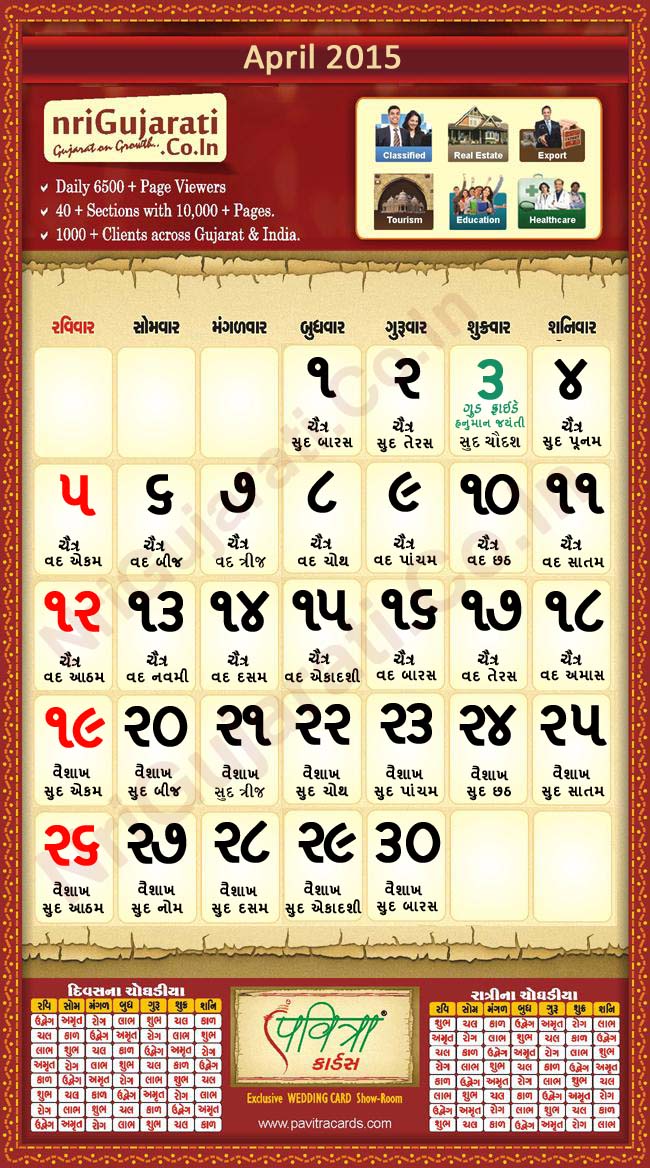 April 2015
nriGujarati
Gujarat on Growth..
.Co.In
Daily 6500 + Page Viewers
40 + Sections with 10,000 + Pages.
1000 + Clients across Gujarat & India.
Classified Real Estate Export
Tourism Education Healthcare
રવિવાર સોમવાર મંગળવાર બુધવાર ગુરૂવાર શુક્રવાર શનિવાર
૧ ૨ ૩ ૪
ગુડ ફ્રાઈડે
હનુમાન જયંતી
ચૈત્ર ચૈત્ર ચૈત્ર
સુદ બારસ સુદ તેરસ સુદ ચૌદશ સુદ પૂનમ
૫ ૬ ૭ ૮ ૯ ૧૦ ૧૧
ચૈત્ર ચૈત્ર ચૈત્ર ચૈત્ર ચૈત્ર ચૈત્ર ચૈત્ર
વદ એકમ વદ બીજ વદ ત્રીજ વદ ચોથ વદ પાંચમ વદ છઠ વદ સાતમ
૧૨ ૧૩ ૧૪ ૧૫ ૧૬ ૧૭ ૧૮
ચૈત્ર ચૈત્ર ચૈત્ર ચૈત્ર ચૈત્ર ચૈત્ર ચૈત્ર
વદ આઠમ વદ નવમી વદ દસમ વદ એકાદશી વદ બારસ વદ તેરસ વદ અમાસ
૧૯ ૨૦ ૨૧ ૨૨ ૨૩ ૨૪ ૨૫
વૈશાખ વૈશાખ વૈશાખ વૈશાખ વૈશાખ વૈશાખ વૈશાખ
સુદ એકમ સુદ બીજ સુદ ત્રીજ સુદ ચોથ સુદ પાંચમ સુદ છઠ સુદ સાતમ
૨૬ ૨૭ ૨૮ ૨૯ ૩૦
વૈશાખ વૈશાખ વૈશાખ વૈશાખ વૈશાખ
સુદ આઠમ સુદ નોમ સુદ દસમ સુદ એકાદશી સુદ બારસ
NriGujarati.Co.In
NriGujarati.Co.In
દિવસના ચોઘડીયા
રવિ સોમ મંગળ બુધ ગુરૂ શુક્ર શનિ
ઉદ્વેગ અમૃત રોગ લાભ શુભ ચલ કાળ
ચલ કાળ ઉદ્વેગ અમૃત રોગ લાભ શુભ
લાભ શુભ ચલ કાળ ઉદ્વેગ અમૃત રોગ
અમૃત રોગ લાભ શુભ ચલ કાળ ઉદ્વેગ
કાળ ઉદ્વેગ અમૃત રોગ લાભ શુભ ચલ
શુભ ચલ કાળ ઉદ્વેગ અમૃત રોગ લાભ
રોગ લાભ શુભ ચલ કાળ ઉદ્વેગ અમૃત
ઉદ્વેગ અમૃત રોગ લાભ શુભ ચલ કાળ
પવિત્રા®
કાર્ડસ
Exclusive WEDDING CARD Show-Room
www.pavitracards.com
રાત્રીના ચોઘડીયા
રવિ સોમ મંગળ બુધ ગુરૂ શુક્ર શનિ
શુભ ચલ કાળ ઉદ્વેગ અમૃત રોગ લાભ
અમૃત રોગ લાભ શુભ ચલ કાળ ઉદ્વેગ
ચલ કાળ ઉદ્વેગ અમૃત રોગ લાભ શુભ
રોગ લાભ શુભ ચલ કાળ ઉદ્વેગ અમૃત
કાળ ઉદ્વેગ અમૃત રોગ લાભ શુભ ચલ
લાભ શુભ ચલ કાળ ઉદ્વેગ અમૃત રોગ
ઉદ્વેગ અમૃત રોગ લાભ શુભ ચલ કાળ
શુભ ચલ કાળ ઉદ્વેગ અમૃત રોગ લાભ